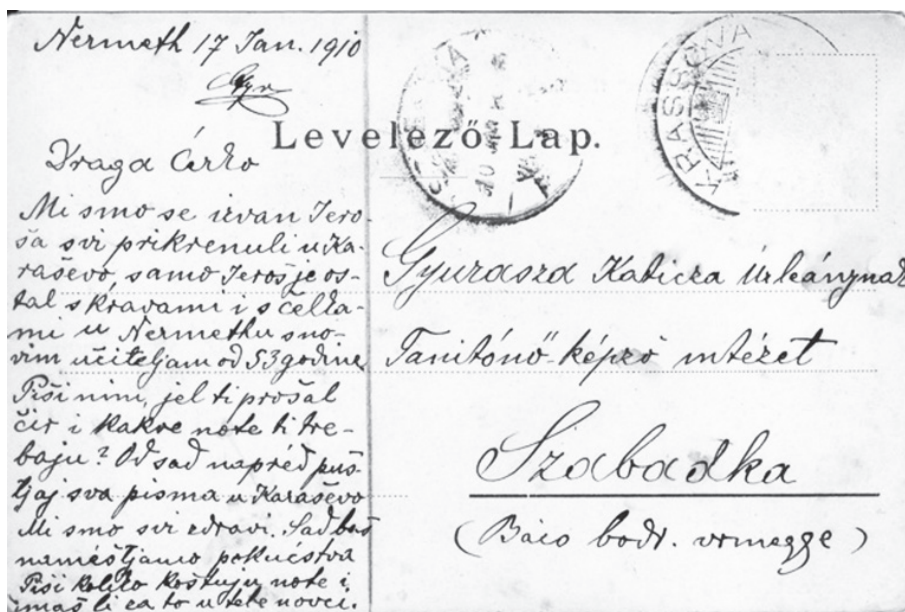 Nermeth 17 Jan. 1910
Levelező-Lap.
KRASSOVA
Draga Ćerko
Mi smo se izvan Jero-
ša svi prikrenuli u Ka-
raševo, samo Jeroš je os-
tal s kravami i s čella-
mi u Nermethu s no-
vim učiteljam od 53 godine
Piši nim, jel ti prošal
čir i kakve note ti tre-
baju? Od sad napréd puš-
tjaj sva pisma u Karaševo
Mi smo svi zdravi. Sad baš
naméštjamo pokućstva
Piši koliko koštuju note i
imaš li za to u tebe novci.
Gyuraszа Katicza Úrleánynak
Tanítónő-képző intézet
Szabadka
(Bács bodr. vrmegge)